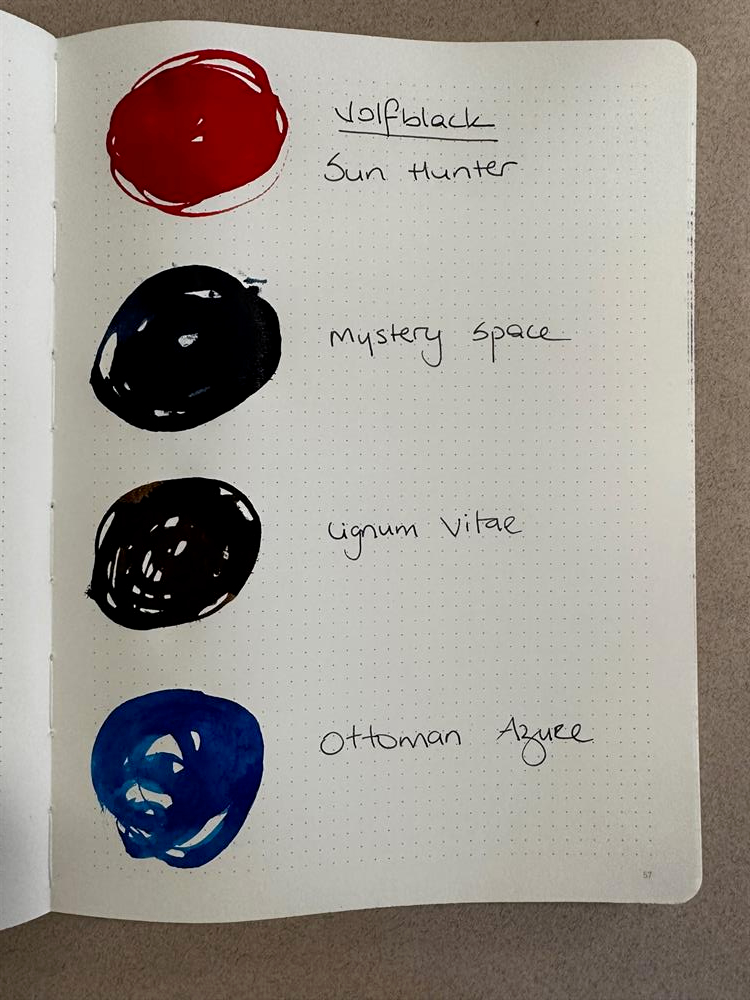 Volfblack
Sun Hunter
Mystery Space
Lignum Vitae
Ottoman Azure
57